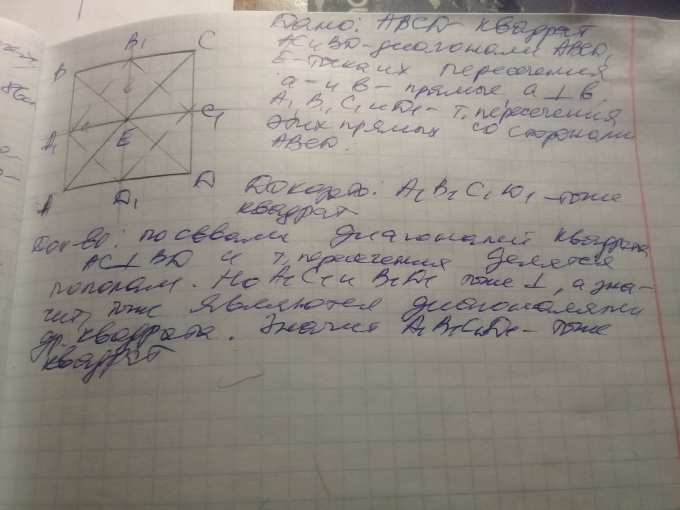 B
B1
C
A1
E
C1
A
D1
D
Дано: ABCD - квадрат
AC и BD - диагонали ABCD,
E - точка их пересечения
a - и в - прямые, a ⊥ в,
A1 B1 C1 и D1 - т. пересечения
этих прямых со сторонами
ABCD.
Доказать: A1B1C1D1 - тоже
квадрат
Док-во: по св-вам диагоналей квадрата
AC ⊥ BD и т. пересечения делятся
пополам. Но A1C1 и B1D1 тоже ⊥, а зна-
чит, тоже являются диагоналями
др. квадрата. Значит A1B1C1D1 - тоже
квадрат